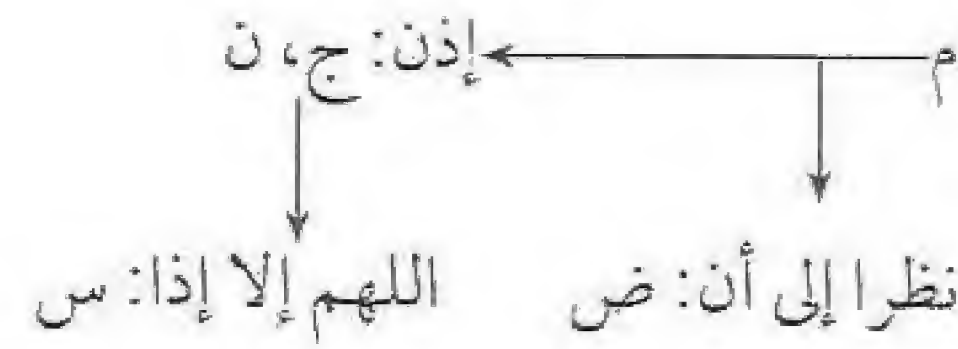 م إذن: ج، ن
نظرا إلى أن: ض اللهم إلا إذا: س